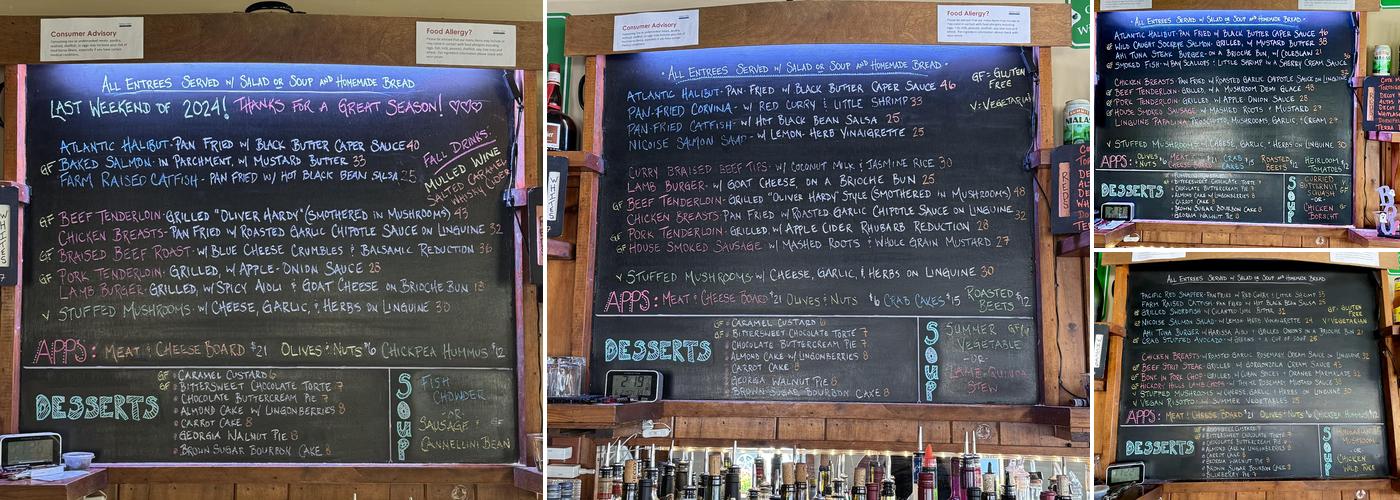 Consumer Advisory
Food Allergy?
All Entrees Served w/ Salad or Soup and Homemade Bread
Last Weekend of 2024! Thanks for a Great Season!
Atlantic Halibut-Pan Fried w/ Black Butter Caper Sauce 40
GF Baked Salmon-in Parchment, w/ Mustard Butter 33
Farm Raised Catfish-Pan Fried w/ Hot Black Bean Salsa 25
Fall Drinks:
Mulled Wine
Salted Caramel
Whiskey Cider
GF Beef Tenderloin-Grilled "Oliver Hardy" (Smothered in Mushrooms) 43
Chicken Breasts-Pan Fried w/ Roasted Garlic Chipotle Sauce on Linguine 32
GF Braised Beef Roast-w/ Blue Cheese Crumbles & Balsamic Reduction 36
GF Pork Tenderloin-Grilled, w/ Apple-Onion Sauce 28
Lamb Burger-Grilled, w/ Spicy Aioli & Goat Cheese on Brioche Bun
V Stuffed Mushrooms-w/ Cheese, Garlic, & Herbs on Linguine 30
Apps: Meat & Cheese Board $21 Olives & Nuts $6 Chickpea Hummus $12
Desserts
GF Caramel Custard 6
GF Bittersweet Chocolate Torte 7
Chocolate Buttercream Pie 7
Almond Cake w/ Lingonberries 8
Carrot Cake 8
Georgia Walnut Pie 8
Brown Sugar Bourbon Cake 8
Soup
Fish Chowder
-or-
Sausage & Cannellini Bean
Whites
Consumer Advisory
Food Allergy?
All Entrees Served w/ Salad or Soup and Homemade Bread
GF=Gluten Free
V=Vegetarian
Atlantic Halibut-Pan Fried w/ Black Butter Caper Sauce 46
Pan-Fried Corvina-w/ Red Curry & Little Shrimp 33
Pan-Fried Catfish-w/ Hot Black Bean Salsa 25
Nicoise Salmon Salad-w/ Lemon-Herb Vinaigrette 25
Curry Braised Beef Tips-w/ Coconut Milk & Jasmine Rice 30
Lamb Burger-w/ Goat Cheese, on a Brioche Bun 25
GF Beef Tenderloin-Grilled "Oliver Hardy" Style (Smothered in Mushrooms) 48
Chicken Breasts Pan Fried w/ Roasted Garlic Chipotle Sauce on Linguine 32
GF Pork Tenderloin-Grilled, w/ Apple Cider Rhubarb Reduction 28
GF House Smoked Sausage-w/ Mashed Roots & Whole Grain Mustard 27
V Stuffed Mushrooms-w/ Cheese, Garlic, & Herbs on Linguine 30
Apps: Meat & Cheese Board $21 Olives & Nuts $6 Crab Cakes $15 Roasted Beets $12
Desserts
GF Caramel Custard 6
GF Bittersweet Chocolate Torte 7
Chocolate Buttercream Pie 7
Almond Cake w/ Lingonberries 8
Carrot Cake 8
Georgia Walnut Pie 8
Brown Sugar Bourbon Cake 8
Soup
Summer Vegetable
-or-
Lamb-Quinoa Stew
Whites
Reds
All Entrees Served w/ Salad or Soup and Homemade Bread
Atlantic Halibut-Pan Fried w/ Black Butter Caper Sauce 46
GF Wild Caught Sockeye Salmon-Grilled, w/ Mustard Butter 38
Ahi Tuna Steak Burger-on a Brioche Bun w/ Coleslaw 21
GF Smoked Fish-w/ Bay Scallops & Little Shrimp in a Sherry Cream Sauce
Chicken Breasts-Pan Fried w/ Roasted Garlic Chipotle Sauce on Linguine
GF Beef Tenderloin-Grilled, w/ a Mushroom Demi Glace 48
GF Pork Tenderloin-Grilled w/ Apple Onion Sauce 28
GF House Smoked Sausage-w/ Mashed Roots & Mustard 27
Linguine Papalina-Prosciutto, Mushrooms, Garlic, & Cream 27
V Stuffed Mushrooms-w/ Cheese, Garlic, & Herbs on Linguine 30
Apps: Olives & Nuts Meat & Cheese $21 Crab Cakes Roasted Beets Heirloom Tomatoes
Desserts
Bittersweet Chocolate Torte 7
Chocolate Buttercream Pie 7
Almond Cake w/ Lingonberries 8
Carrot Cake 8
Brown Sugar Bourbon Cake 8
Georgia Walnut Pie 8
Soup
Curried Butternut Squash
-or-
Chicken Borsht
All Entrees Served w/ Salad or Soup and Homemade Bread
Pacific Red Snapper-Pan Fried w/ Red Curry & Little Shrimp 33
Farm Raised Catfish-Pan Fried w/ Hot Black Bean Salsa 25
GF Grilled Swordfish-w/ Cilantro Lime Butter 32
GF Nicoise Salmon Salad-w/ Lemon Herb Vinaigrette 24
Ahi Tuna Burger-w/ Harissa Aioli & Grilled Onions on a Brioche Bun 21
GF=Gluten Free
V=Vegetarian
Chicken Breasts-w/ Roasted Garlic Rosemary Cream Sauce on Linguine 32
GF Beef Strip Steak-Grilled w/ Gorgonzola Cream Sauce 43
GF Bone in Pork Chop-Grilled w/ Spicy & Orange Marmalade
GF Hickory Hills Lamb Chops-w/ Thyme Rosemary Mustard Sauce 38
V Stuffed Mushrooms-w/ Cheese, Garlic, & Herbs on Linguine 30
V Vegan Risotto-w/ Summer Vegetables 25
Apps: Meat & Cheese Board $21 Olives & Nuts $6 Chickpea Hummus $12
Desserts
Bittersweet Chocolate Torte 7
Chocolate Buttercream Pie 7
Almond Cake w/ Lingonberries 8
Carrot Cake 8
Georgia Walnut Pie 8
Brown Sugar Bourbon Cake 8
Blueberry Pie 8
Soup
Mushroom
-or-
Chicken Wild Rice